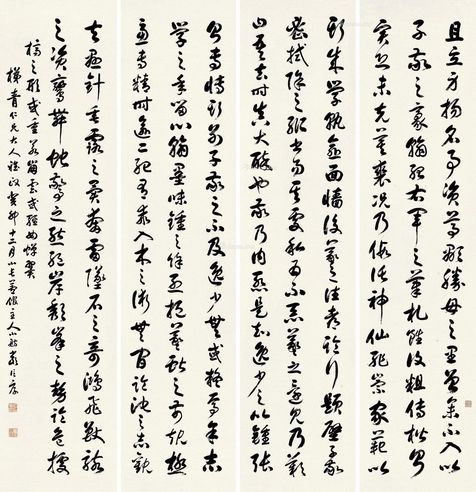 且立身揚名事資尊顯勝母之里曾參不入以
子敬之豪翰紹右軍之筆札雖復粗傳楷則
實恐未克箕裘況乃假託神仙恥崇家範以
斯成學孰愈面牆後羲之往都臨行題壁子敬
密拭除之輒書易其處私為不惡羲之還見乃歎
曰吾去時真大醉也敬乃內慚是知逸少之比鍾張
則專博斯別子敬之不及逸少無或疑焉余志
學之年留心翰墨味鍾張之餘烈挹羲獻之前規極
慮專精時逾二紀有乖入木之術無間臨池之志觀
夫懸針垂露之異奔雷墜石之奇鴻飛獸駭
之資鸞舞蛇驚之態絕岸頹峰之勢臨危據
槁之形或重若崩雲或輕如蟬翼
梯青仁兄大人雅政癸卯十二月